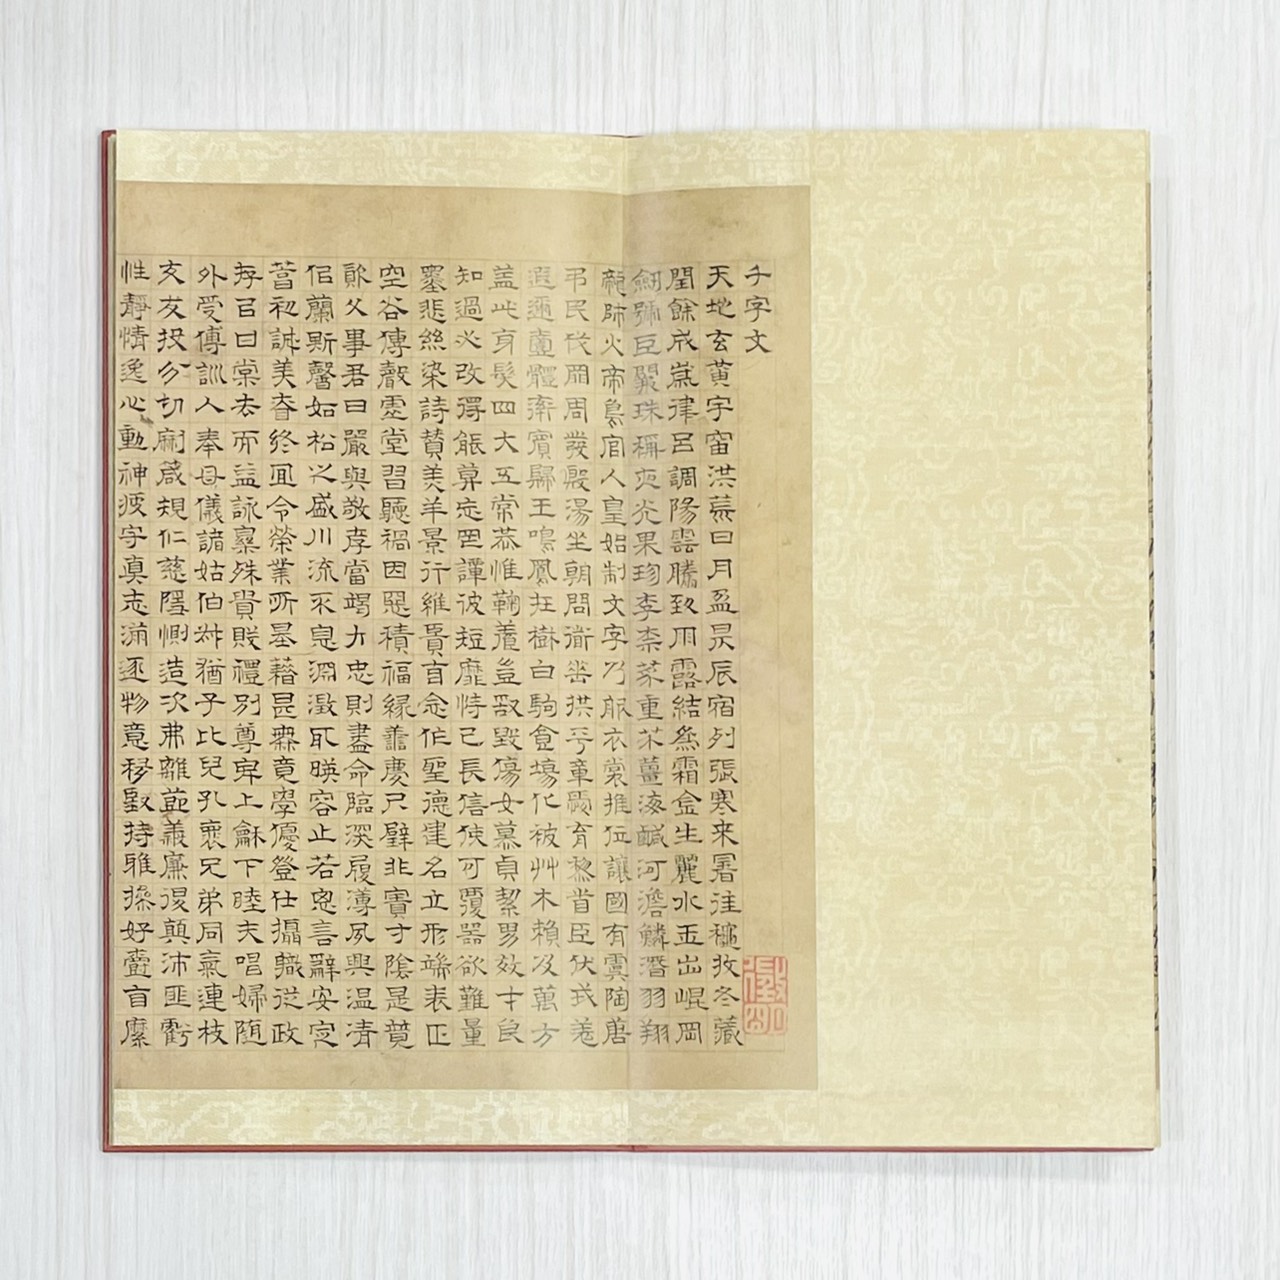 千字文
天地玄黃宇宙洪荒日月盈昃辰宿列張寒来暑往穐收冬藏
閏餘成歲律呂調陽雲騰致雨露結為霜金生麗水玉出崐岡
劒號巨闕珠稱夜光果珍李柰菜重芥薑海鹹河澹鱗潛羽翔
龍師火帝鳥官人皇始制文字乃服衣裳推位讓國有虞陶唐
弔民伐罪周發殷湯坐朝問道垂拱平章愛育黎首臣伏戎羌
遐邇壹體率賓歸王鳴鳳在樹白駒食場化被艸木賴及萬方
蓋此身髮四大五常恭惟鞠養豈敢毀傷女慕貞絜男效才良
知過必改得能莫忘罔譚彼短靡恃己長信使可覆器欲難量
墨悲絲染詩贊羔羊景行維賢克念作聖德建名立形端表正
空谷傳聲虛堂習聽禍因惡積福緣善慶尺璧非寶寸陰是競
資父事君曰嚴與敬孝當竭力忠則盡命臨深履薄夙興溫凊
侣蘭斯馨如松之盛川流不息淵澂取暎容止若思言辭安定
篤初誠美昚終宜令榮業所基藉甚無竟學優登仕攝職從政
存㠯甘棠去而益詠樂殊貴賤禮別尊卑上龢下睦夫唱婦随
外受傅訓入奉母儀諸姑伯叔猶子比兒孔褱兄弟同氣連枝
交友投分切磨箴規仁慈隱惻造次弗離節義廉退顛沛匪虧
性靜情逸心動神疲守真志滿逐物意移堅持雅操好爵自縻